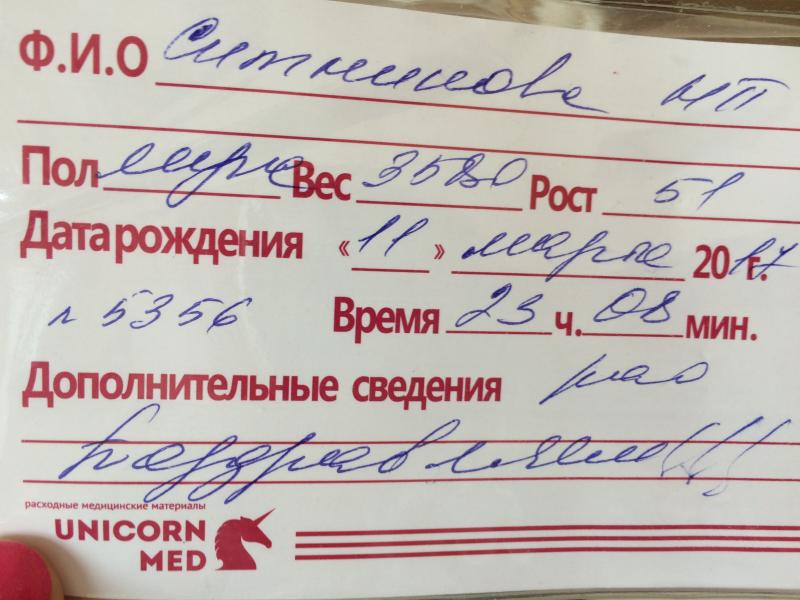 Ф.И.О Ситникова НП
Пол муж Вес 3580 Рост 51
Дата рождения «11» марта 2017 г.
л 5356 Время 23 ч. 08 мин.
Дополнительные сведения
Поздравляем!!!
расходные медицинские материалы
UNICORN
MED